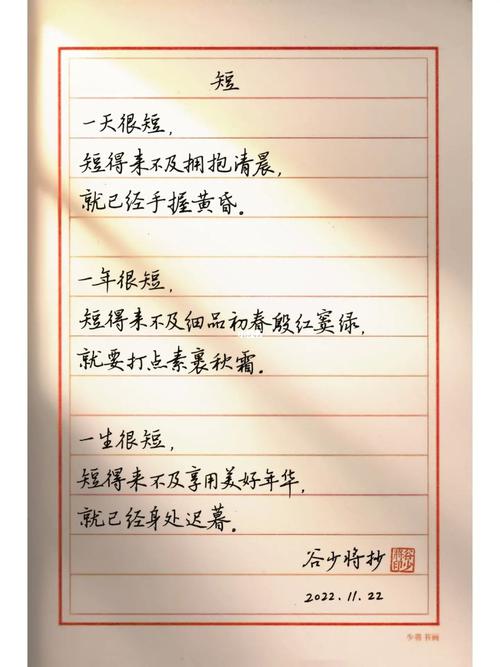 短
一天很短，
短得来不及拥抱清晨，
就已经手握黄昏。
一年很短，
短得来不及细品初春殷红窦绿，
就要打点素裹秋霜。
一生很短，
短得来不及享用美好年华，
就已经身处迟暮。
谷少将抄
2022.11.22